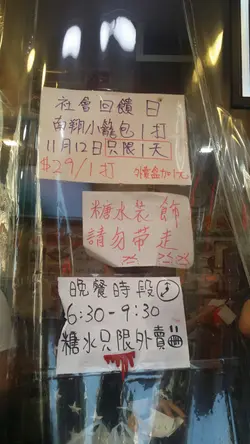 社會回饋日
南翔小籠包1打
11月12日只限1天
$29/1打 獲盒加1元
糖水裝飾
請勿帶走
晚餐時段
6:30-9:30
糖水只限外賣